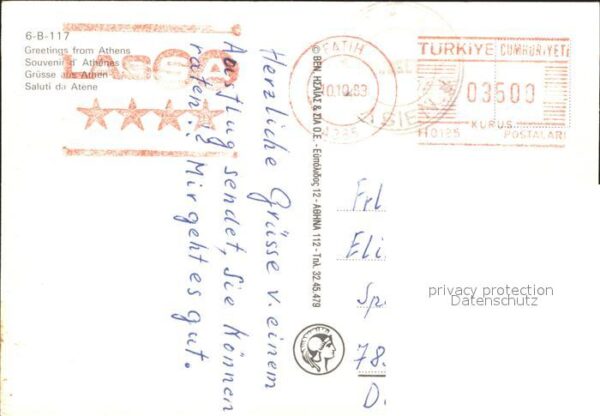 6-B-117
Greetings from Athens
Souvenir d' Athènes
Grüsse aus Athen
Saluti da Atene
LASSA
Herzliche Grüsse v. einem
Ausflug sendet, Sie können
raten!? Mir geht es gut.
© BEN. ΗΣΑΪΑΣ & ΣΙΑ Ο.Ε. - Εὐπόλιδος 12 - ΑΘΗΝΑ 112 - Τηλ. 32.45.479
FATİH
10.10.83
TÜRKİYE CUMHURİYETİ
03500
KURUŞ
H0125
POSTALARI
Frl
Eli
Sp
78.
D.
privacy protection
Datenschutz